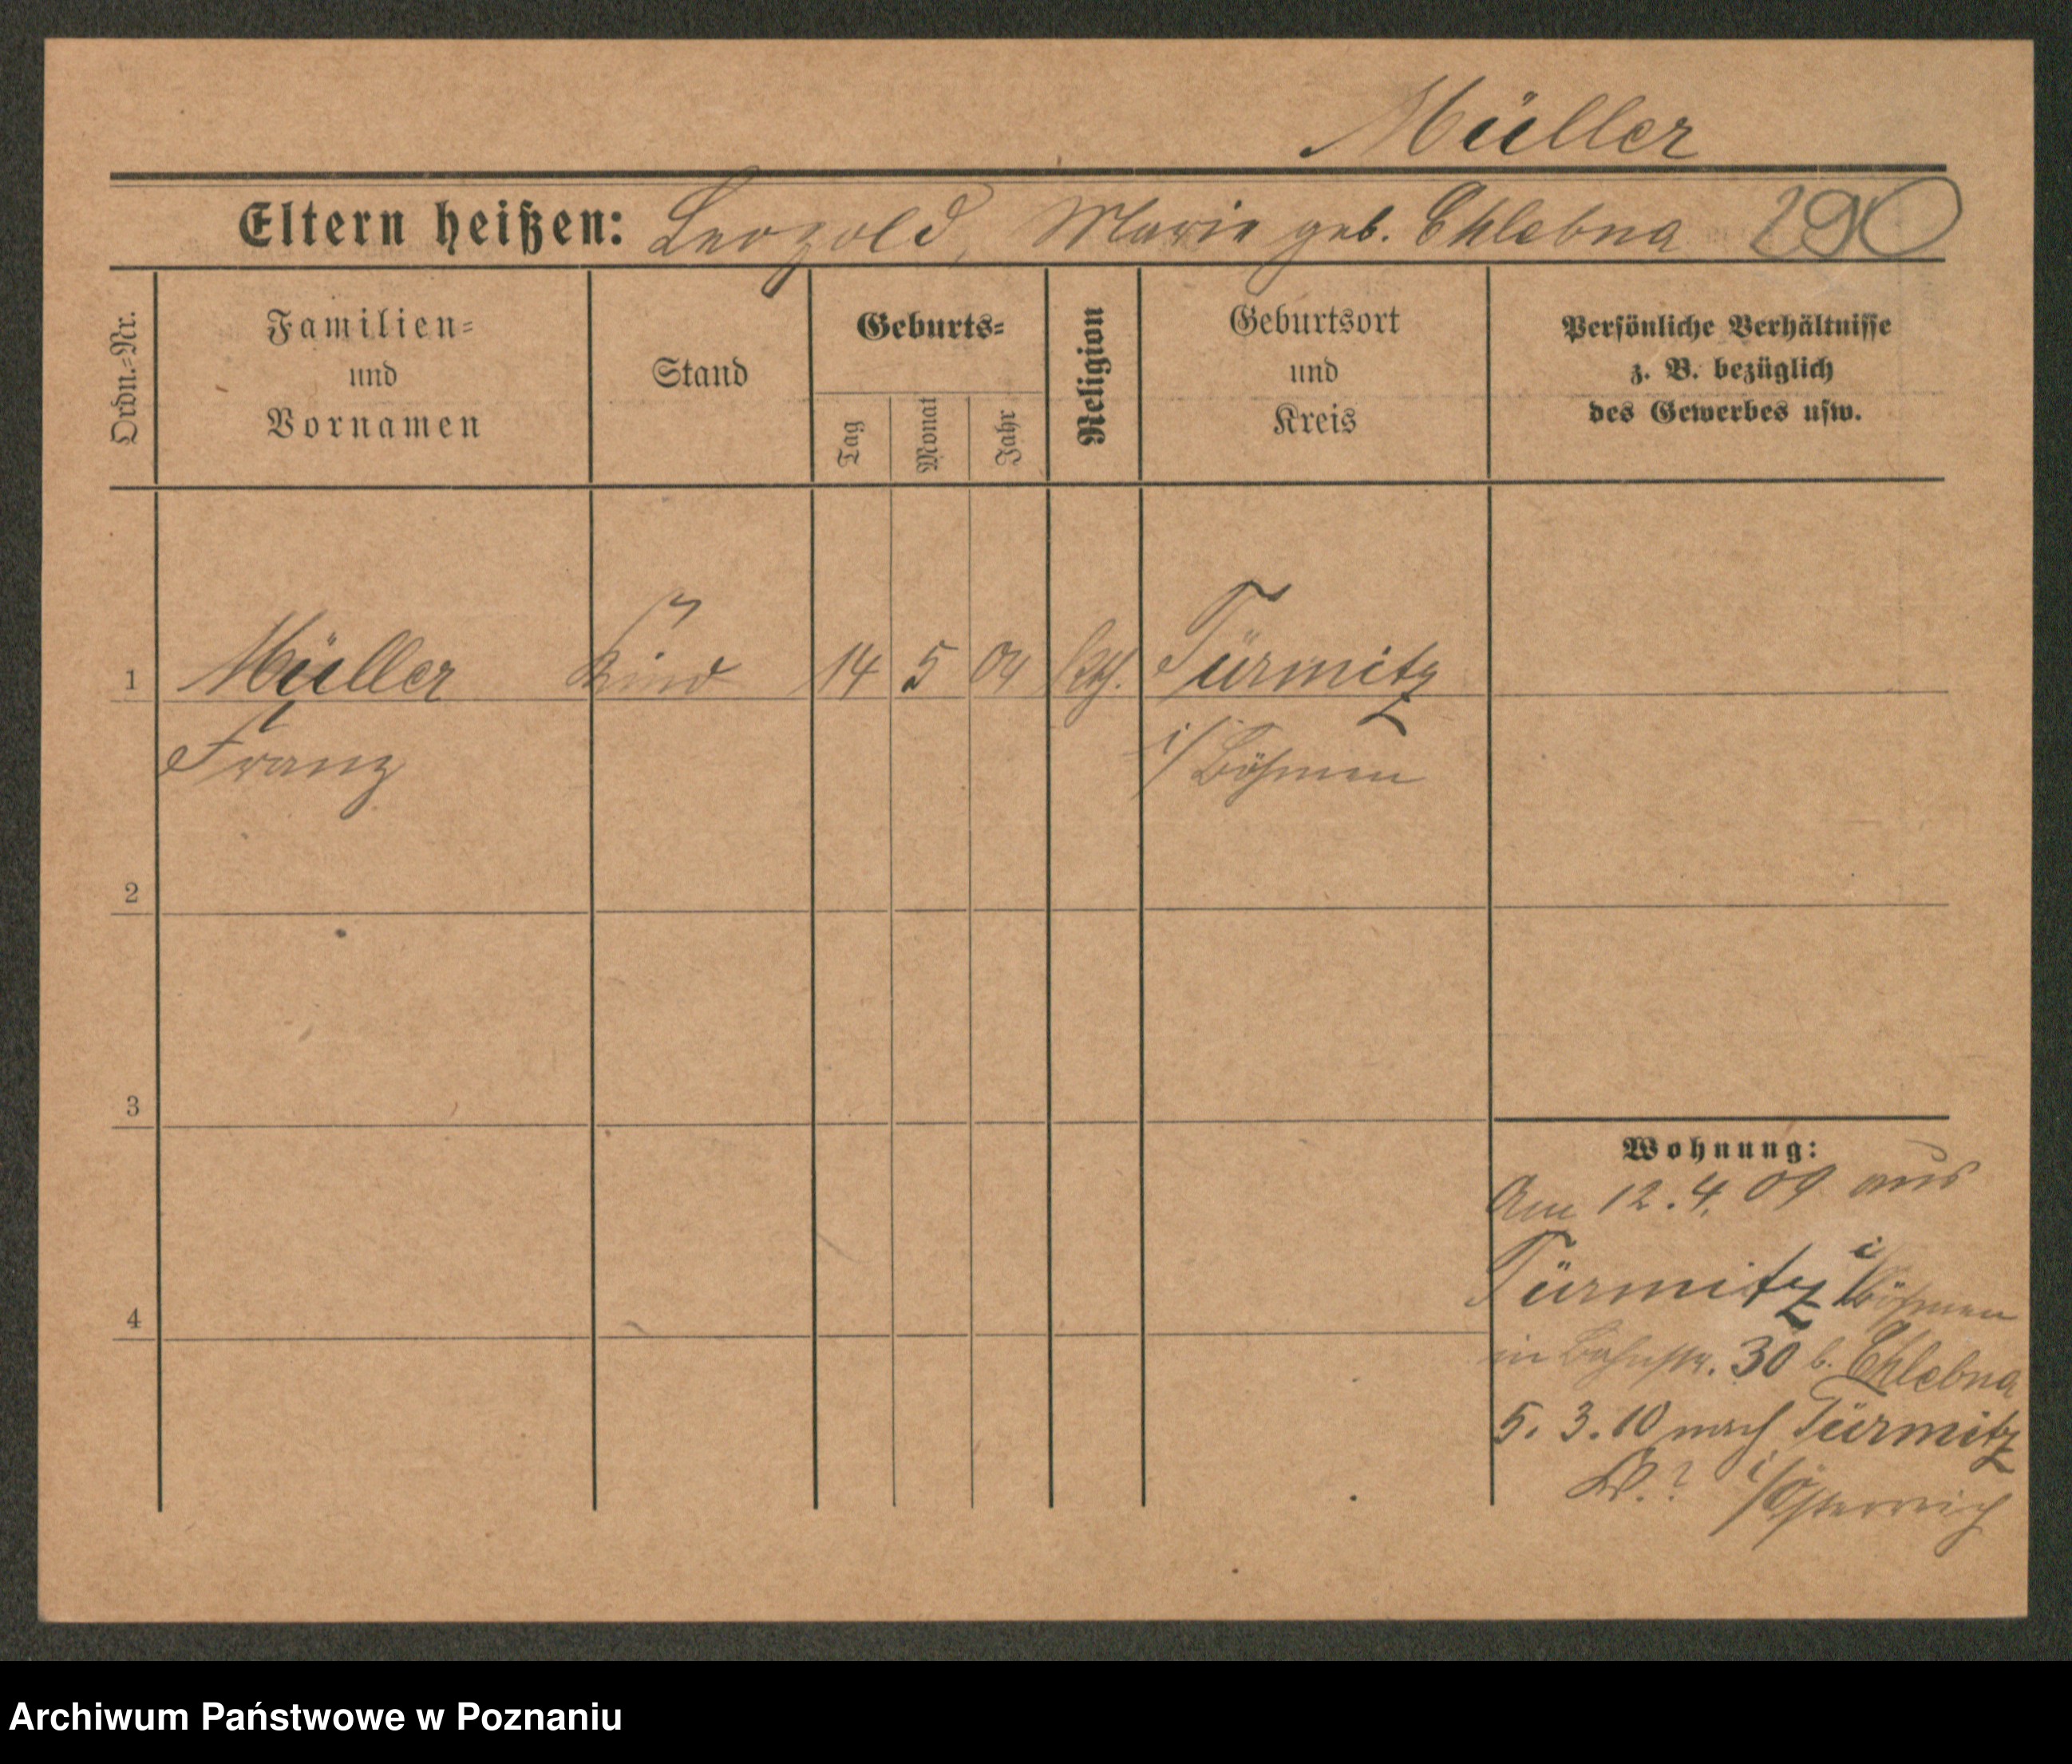 Müller
Eltern heißen: Leopold, Marie geb. Chlebna 290
Ordn.=Nr.
Familien=
und
Vornamen
Stand
Geburts=
Tag
Monat
Jahr
Religion
Geburtsort
und
Kreis
Persönliche Verhältnisse
z. B. bezüglich
des Gewerbes usw.
1 Müller Kind 14 5 04 kth. Türmitz
Franz i/Böhmen
2
3
4
Wohnung:
Am 12.4.09 aus
Türmitz i/Böhmen
in Bahnstr. 30 b. Chlebna
5.3.10 nach Türmitz
W.? i/Österreich
Archiwum Państwowe w Poznaniu